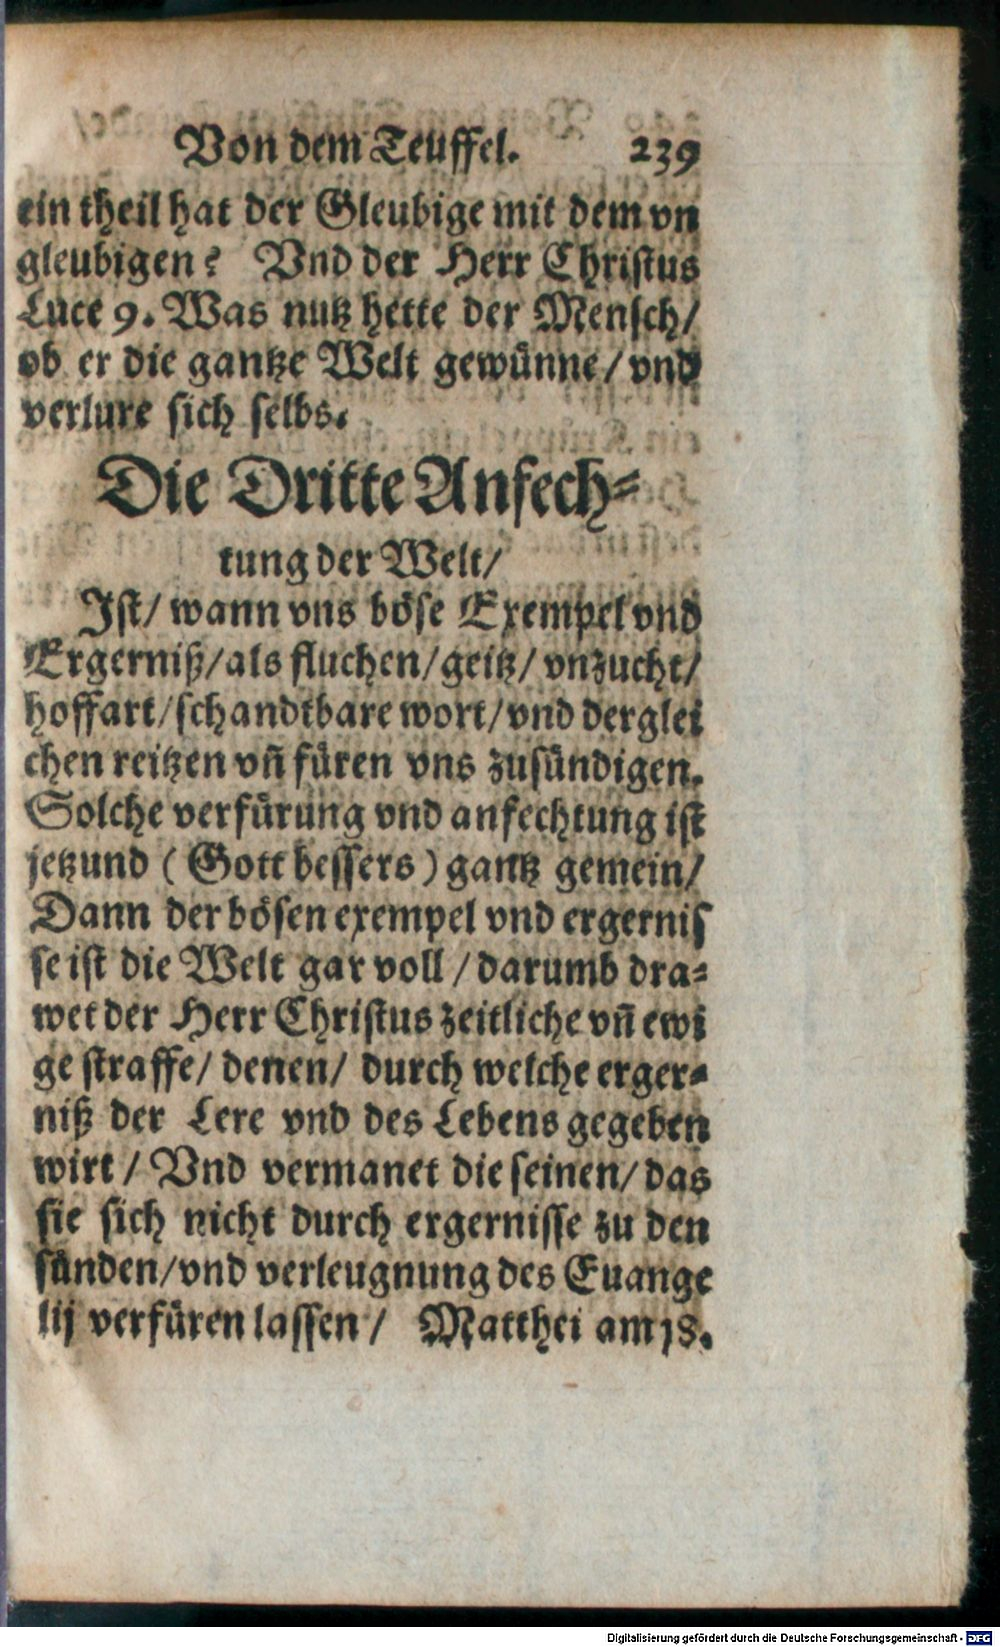 Von dem Teuffel. 239
ein theil hat der Gleubige mit dem vn
gleubigen? Vnd der Herr Christus
Luce 9. Was nutz hette der Mensch/
ob er die gantze Welt gewünne/ vnd
verlure sich selbs.
Die Dritte Anfech-
tung der Welt/
Ist/ wann vns böse Exempel vnd
Ergerniß/ als fluchen/ geitz/ vnzucht/
hoffart/ schandtbare wort/ vnd derglei
chen reitzen vñ füren vns zusündigen.
Solche verfürung vnd anfechtung ist
jetzund ( Gott bessers ) gantz gemein/
Dann der bösen exempel vnd ergernis
se ist die Welt gar voll / darumb dra-
wet der Herr Christus zeitliche vñ ewi
ge straffe/ denen/ durch welche erger-
niß der Lere vnd des Lebens gegeben
wirt / Vnd vermanet die seinen/ das
sie sich nicht durch ergernisse zu den
sünden/ vnd verleugnung des Euange
lij verfüren lassen / Matthei am 18.
Digitalisierung gefördert durch die Deutsche Forschungsgemeinschaft - DFG